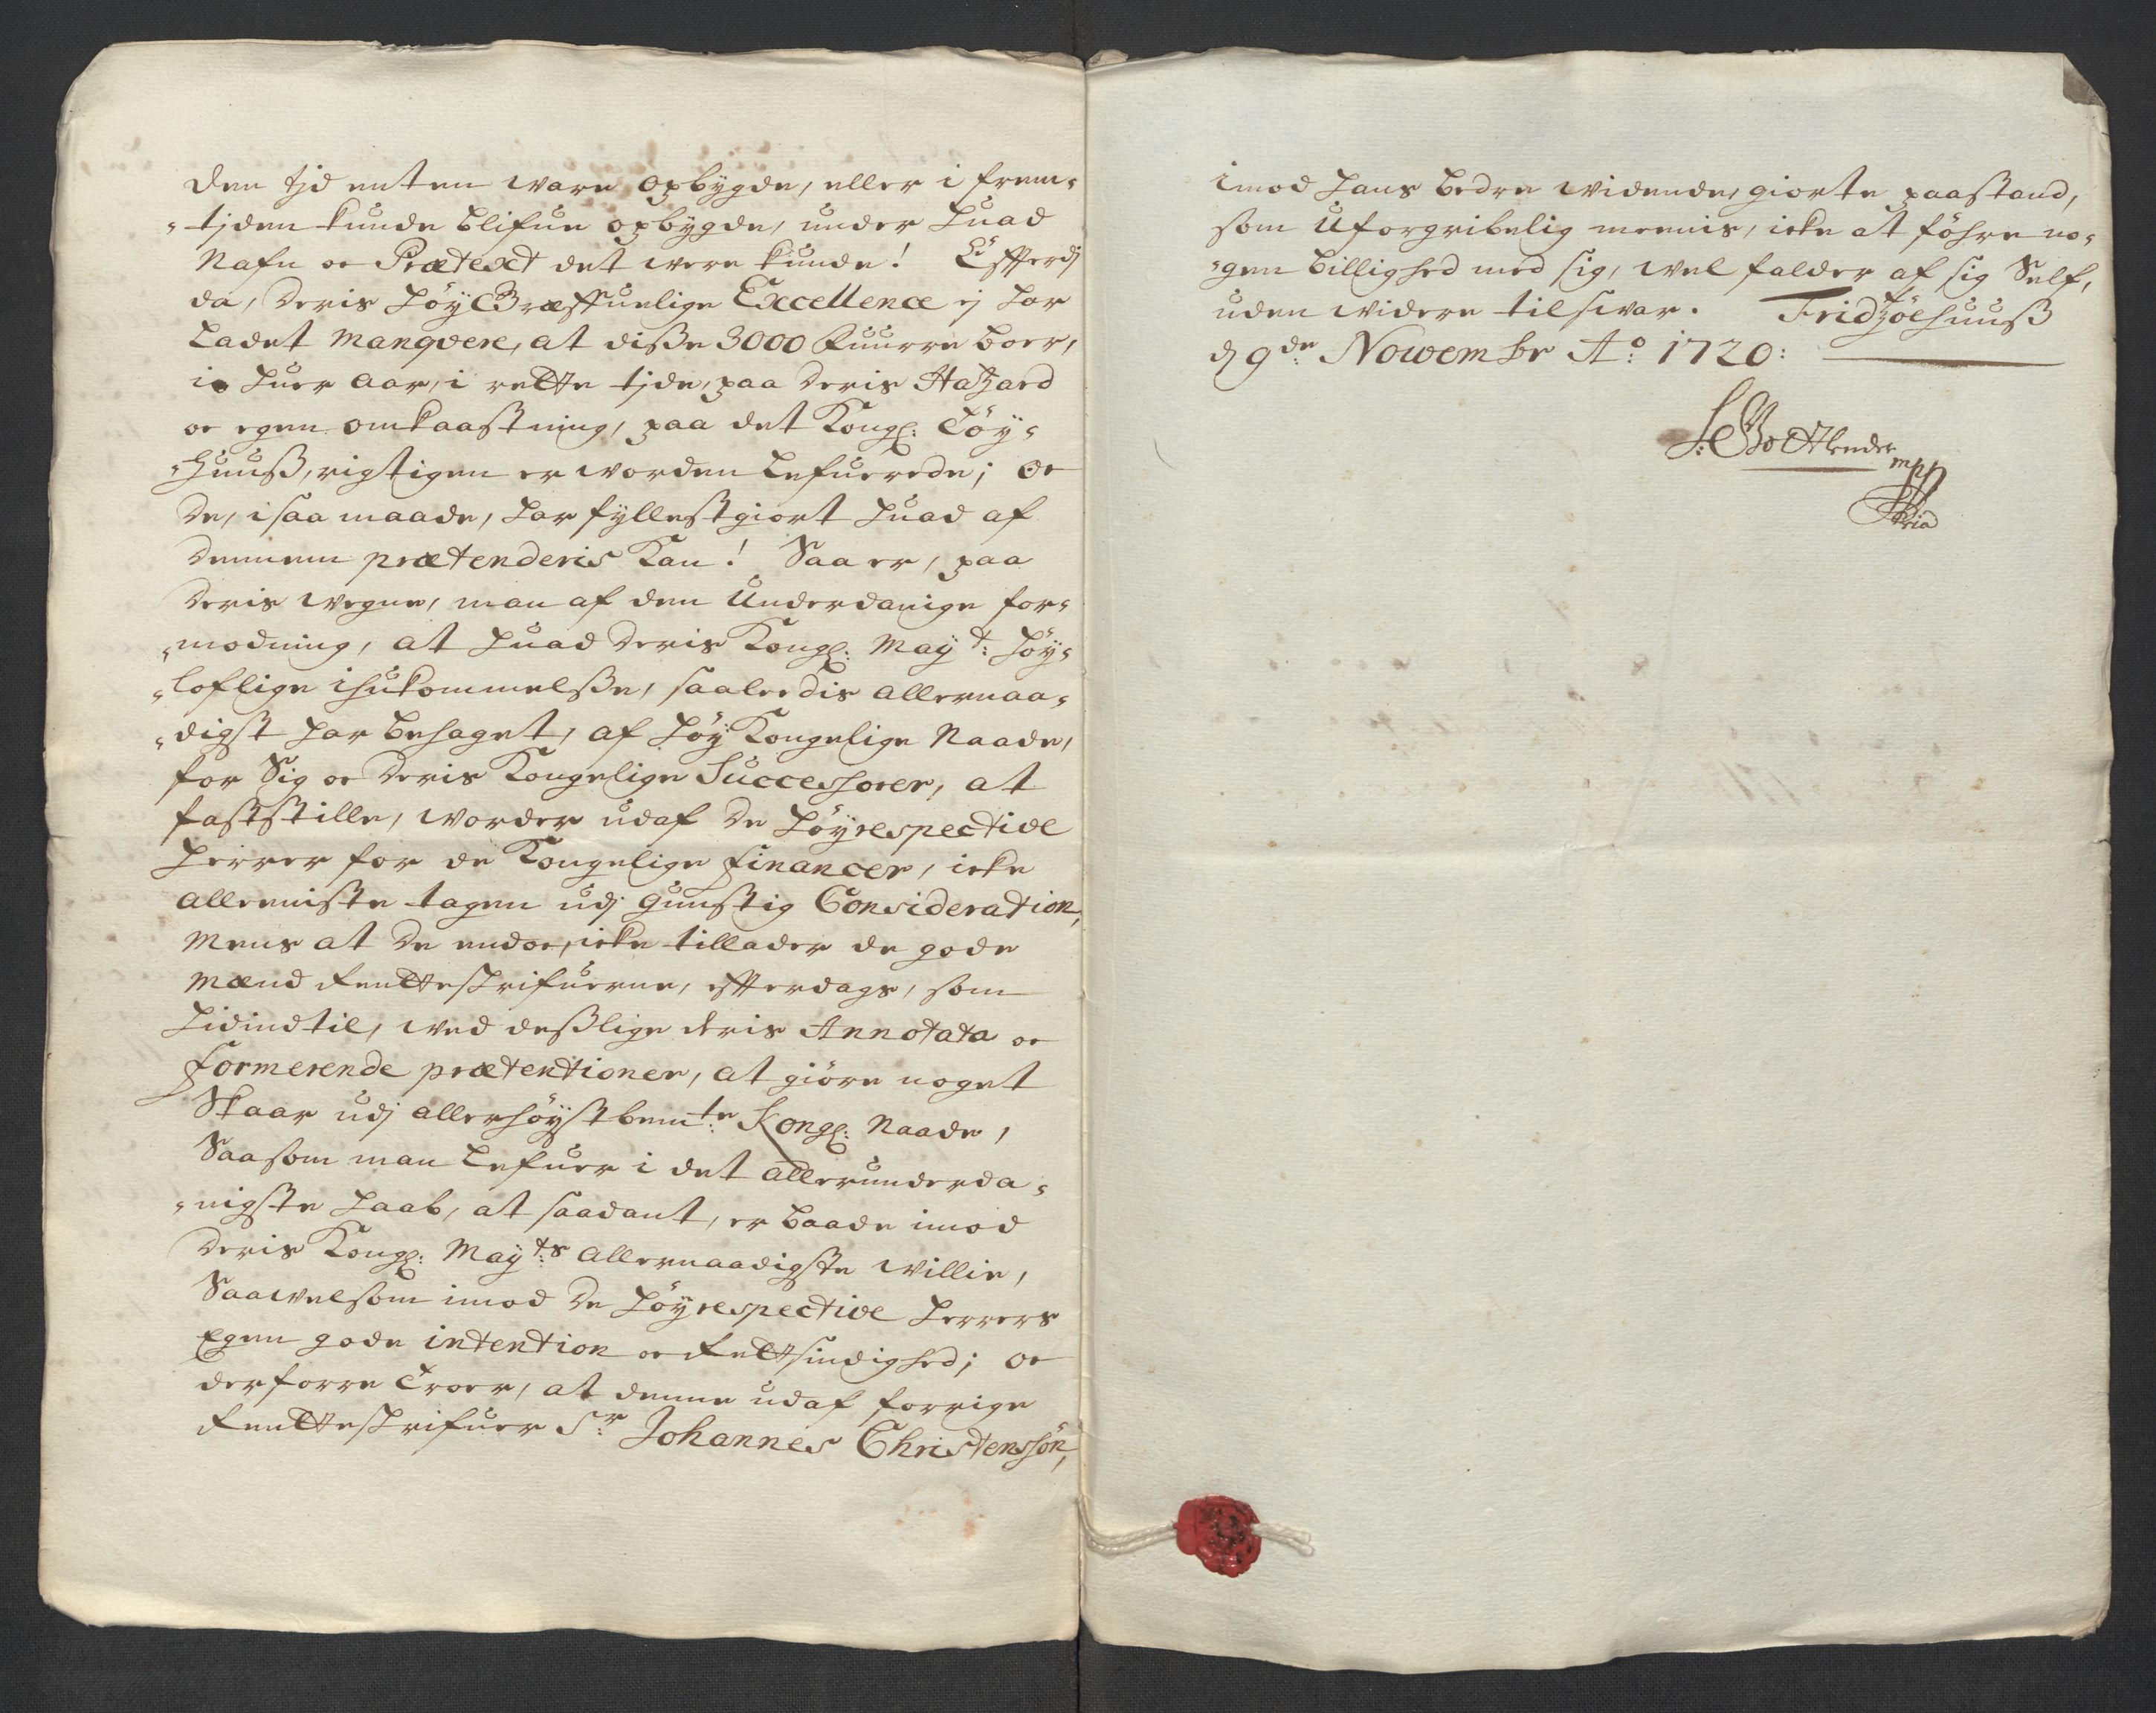 den tjd enten ware opbygde, eller i frem-
-tjden kunde blifue opbygde, under huad
Nafn oc Prætext det were kunde! Efftterdj
da, deris høyGræffuelige Excellence ej har
ladet manqvere, at disse 3000 Fuurre boer,
i huer aar, i rette tjde, paa deris Hatzard
oc egen omkaastning, paa det Kongl: Töy-
-huuss, rigtigen er worden lefuerede; Oc
de, i saa maade, har fyllestgiort huad af
dennem prætenderis kan! Saa er, paa
deris wegne, man af den underdanige for-
-modning, at huad deris Kongl: Mayt: høy-
-loflige ihukommelsse, saaleedis allernaa-
-digst har behaget, af høy Kongelige Naade,
for Sig oc deris Kongelige Successorer, at
fastställe, worder udaf de høyrespective
herrer for de Kongelige financer, icke
alleeniste tagen udj gunstig Consideration,
mens at de endoc, icke tillader de gode
mænd Rentteskrifuerne, efterdags, som
hidindtil, wed desslige deris Annotata oc
formerende prætentioner, at giöre noget
Skaar udj allerhøystbemte: Kongl: Naade,
Saasom man lefuer i det allerunderda-
-nigste haab, at saadant, er baade imod
deris Kongl: Mayts: allernaadigste willie,
Saawelsom imod de høyrespective herrers
Egen gode intention oc Rettsindighed; Oc
derforre troer, at denne udaf forrige
Rentteskrifuer Sr: Johannes Christenssön,
imod hans bedre widende, giorte paastand,
som uforgribelig meenis, icke at föhre no-
-gen billighed med sig, wel falder af sig Self,
uden widere tilswar. Fridzöehuuss
dj 9de: Nowembr Ao: 1720:
mpp
ria